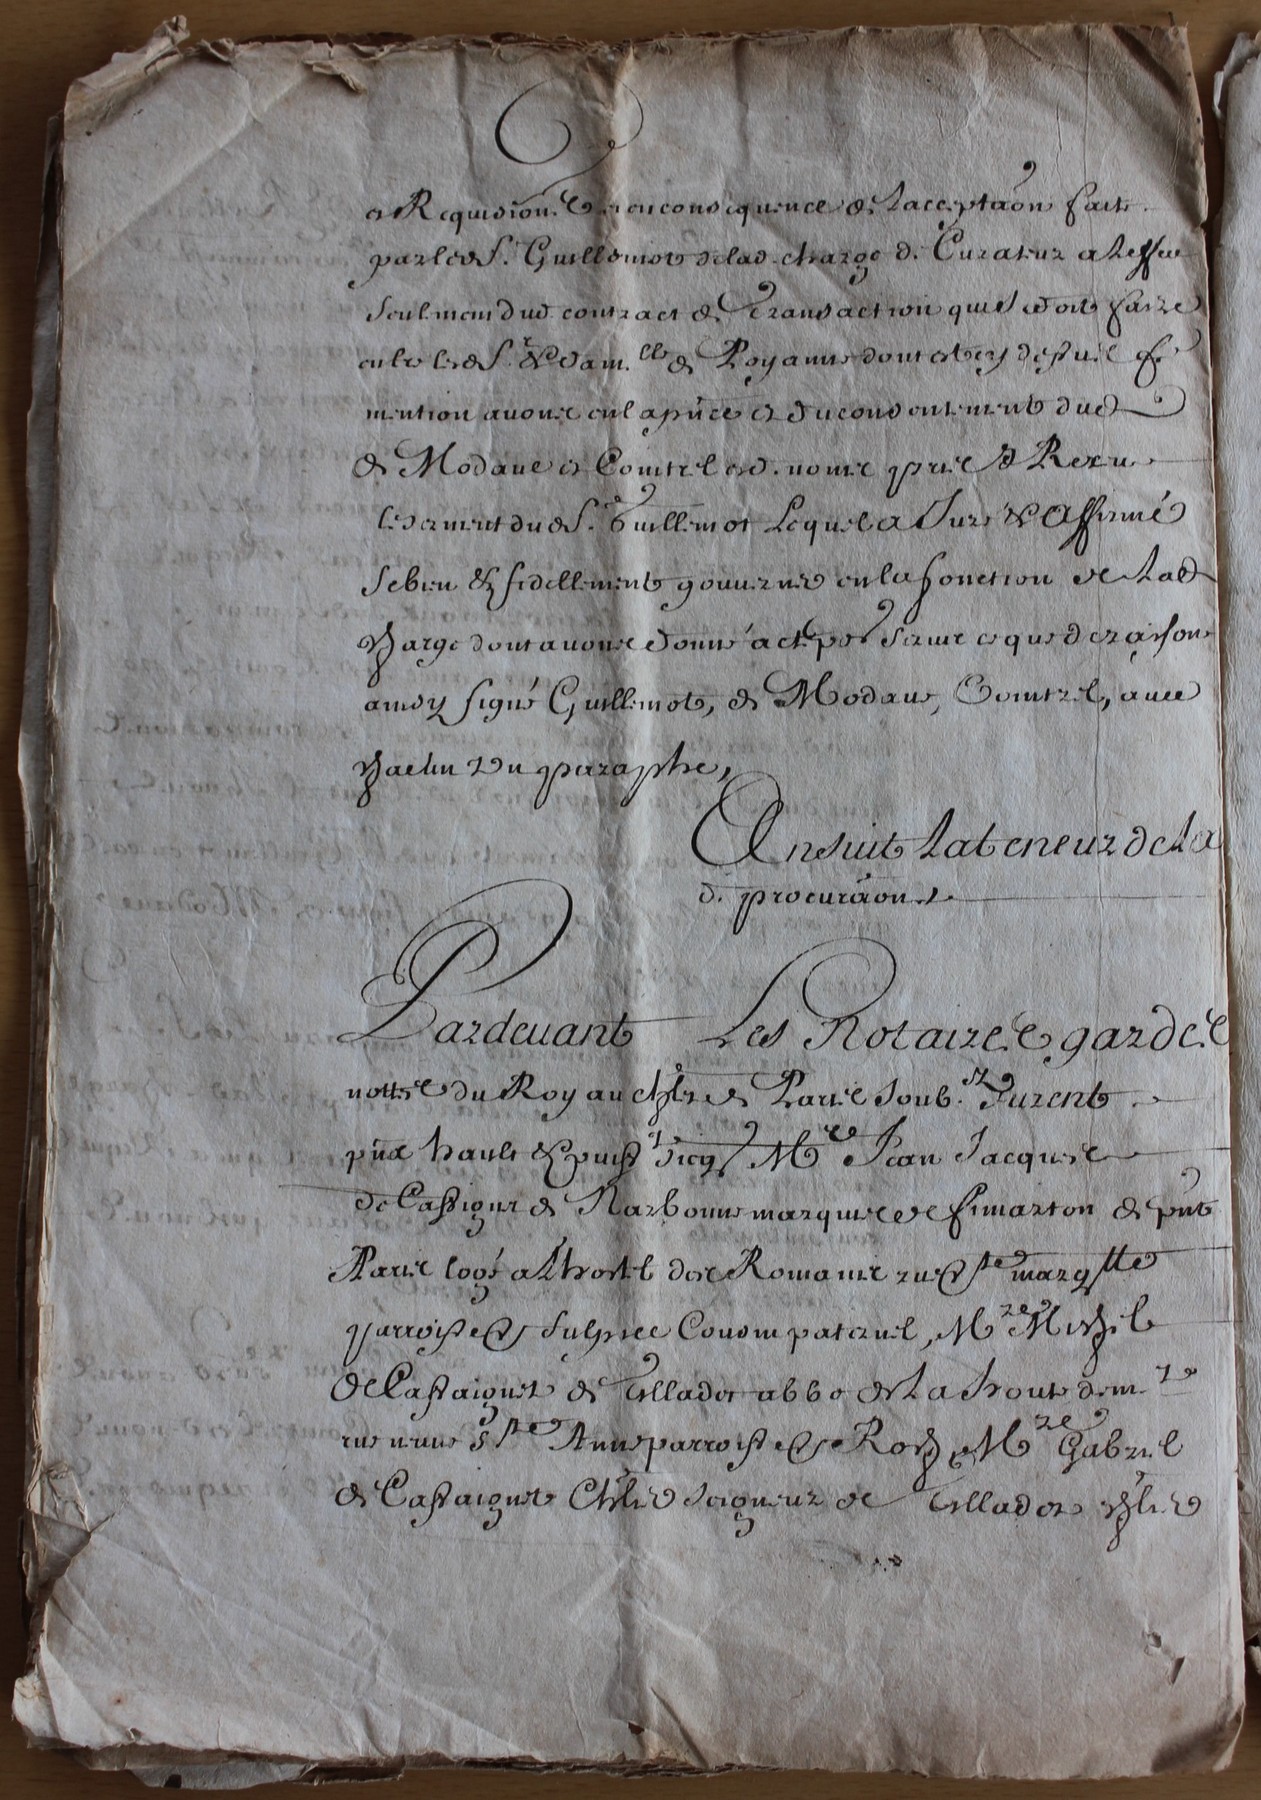 et Requision. Et en consequence de Lacceptaôn faite
par led S. Guillemot delad. charge de Curateur a Leffect
seulment dud. contract de Transaction qui se doit faire
entre lesd S.r & dam.lle de Royanne dont est cy dessus f.
mention avons en la pñce et du consentement dud
de Modave et Comtrel esd. noms pris & Receu
le serment dud S. Guillemot Lequel a Juré & Affirmé
se bien & fidellement gouverner en la fonction de Lad
charge dont avons donné acte pour servir ce que de raison
ainsy signé Guillemot, de Modave, Comtrel, avec
chacun un paraphe,
Ensuit La teneur de La
d. procuraôn
Pardevant Les Notaires garde
nottes du Roy au chlet de Paris soub. st furent
pñs hault & puisst seigr Mre Jean Jacques
de Castaignet de Narbonne marquis de fimarcon de pñt
Paris logé a Lhostel des Romains rue ste margtte
parroisse St Sulpice Cousin paternel, Mre Michel
de Castaignet de Tilladet abbé de La honte demt
rue neuve Ste Anne parroisse St Roch, Mre Gabriel
de Castaignet Chlier seigneur de Tilladet chlier